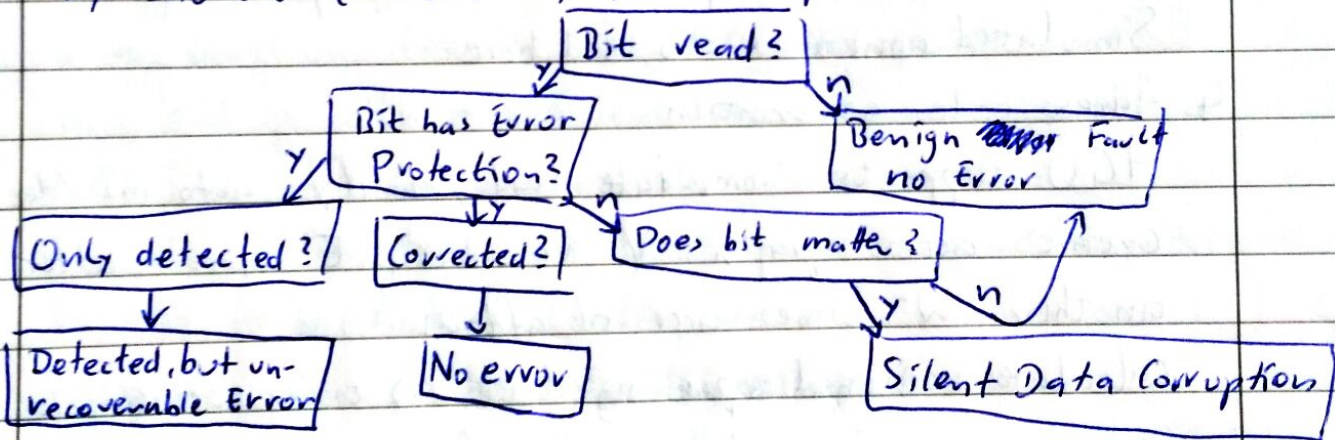 Bit read?
y
n
Bit has Error
Protection?
Benign Fault
no Error
y
y
n
Only detected?
Corrected?
Does bit matter?
y
n
Detected, but un-
recoverable Error
No error
Silent Data Corruption